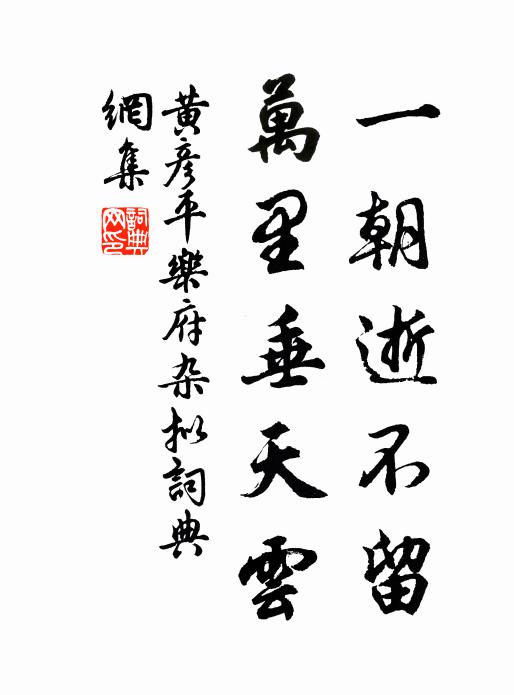 一朝逝不留
萬里垂天雲
黃彥平樂府杂拟詞典
網集
詞典网印